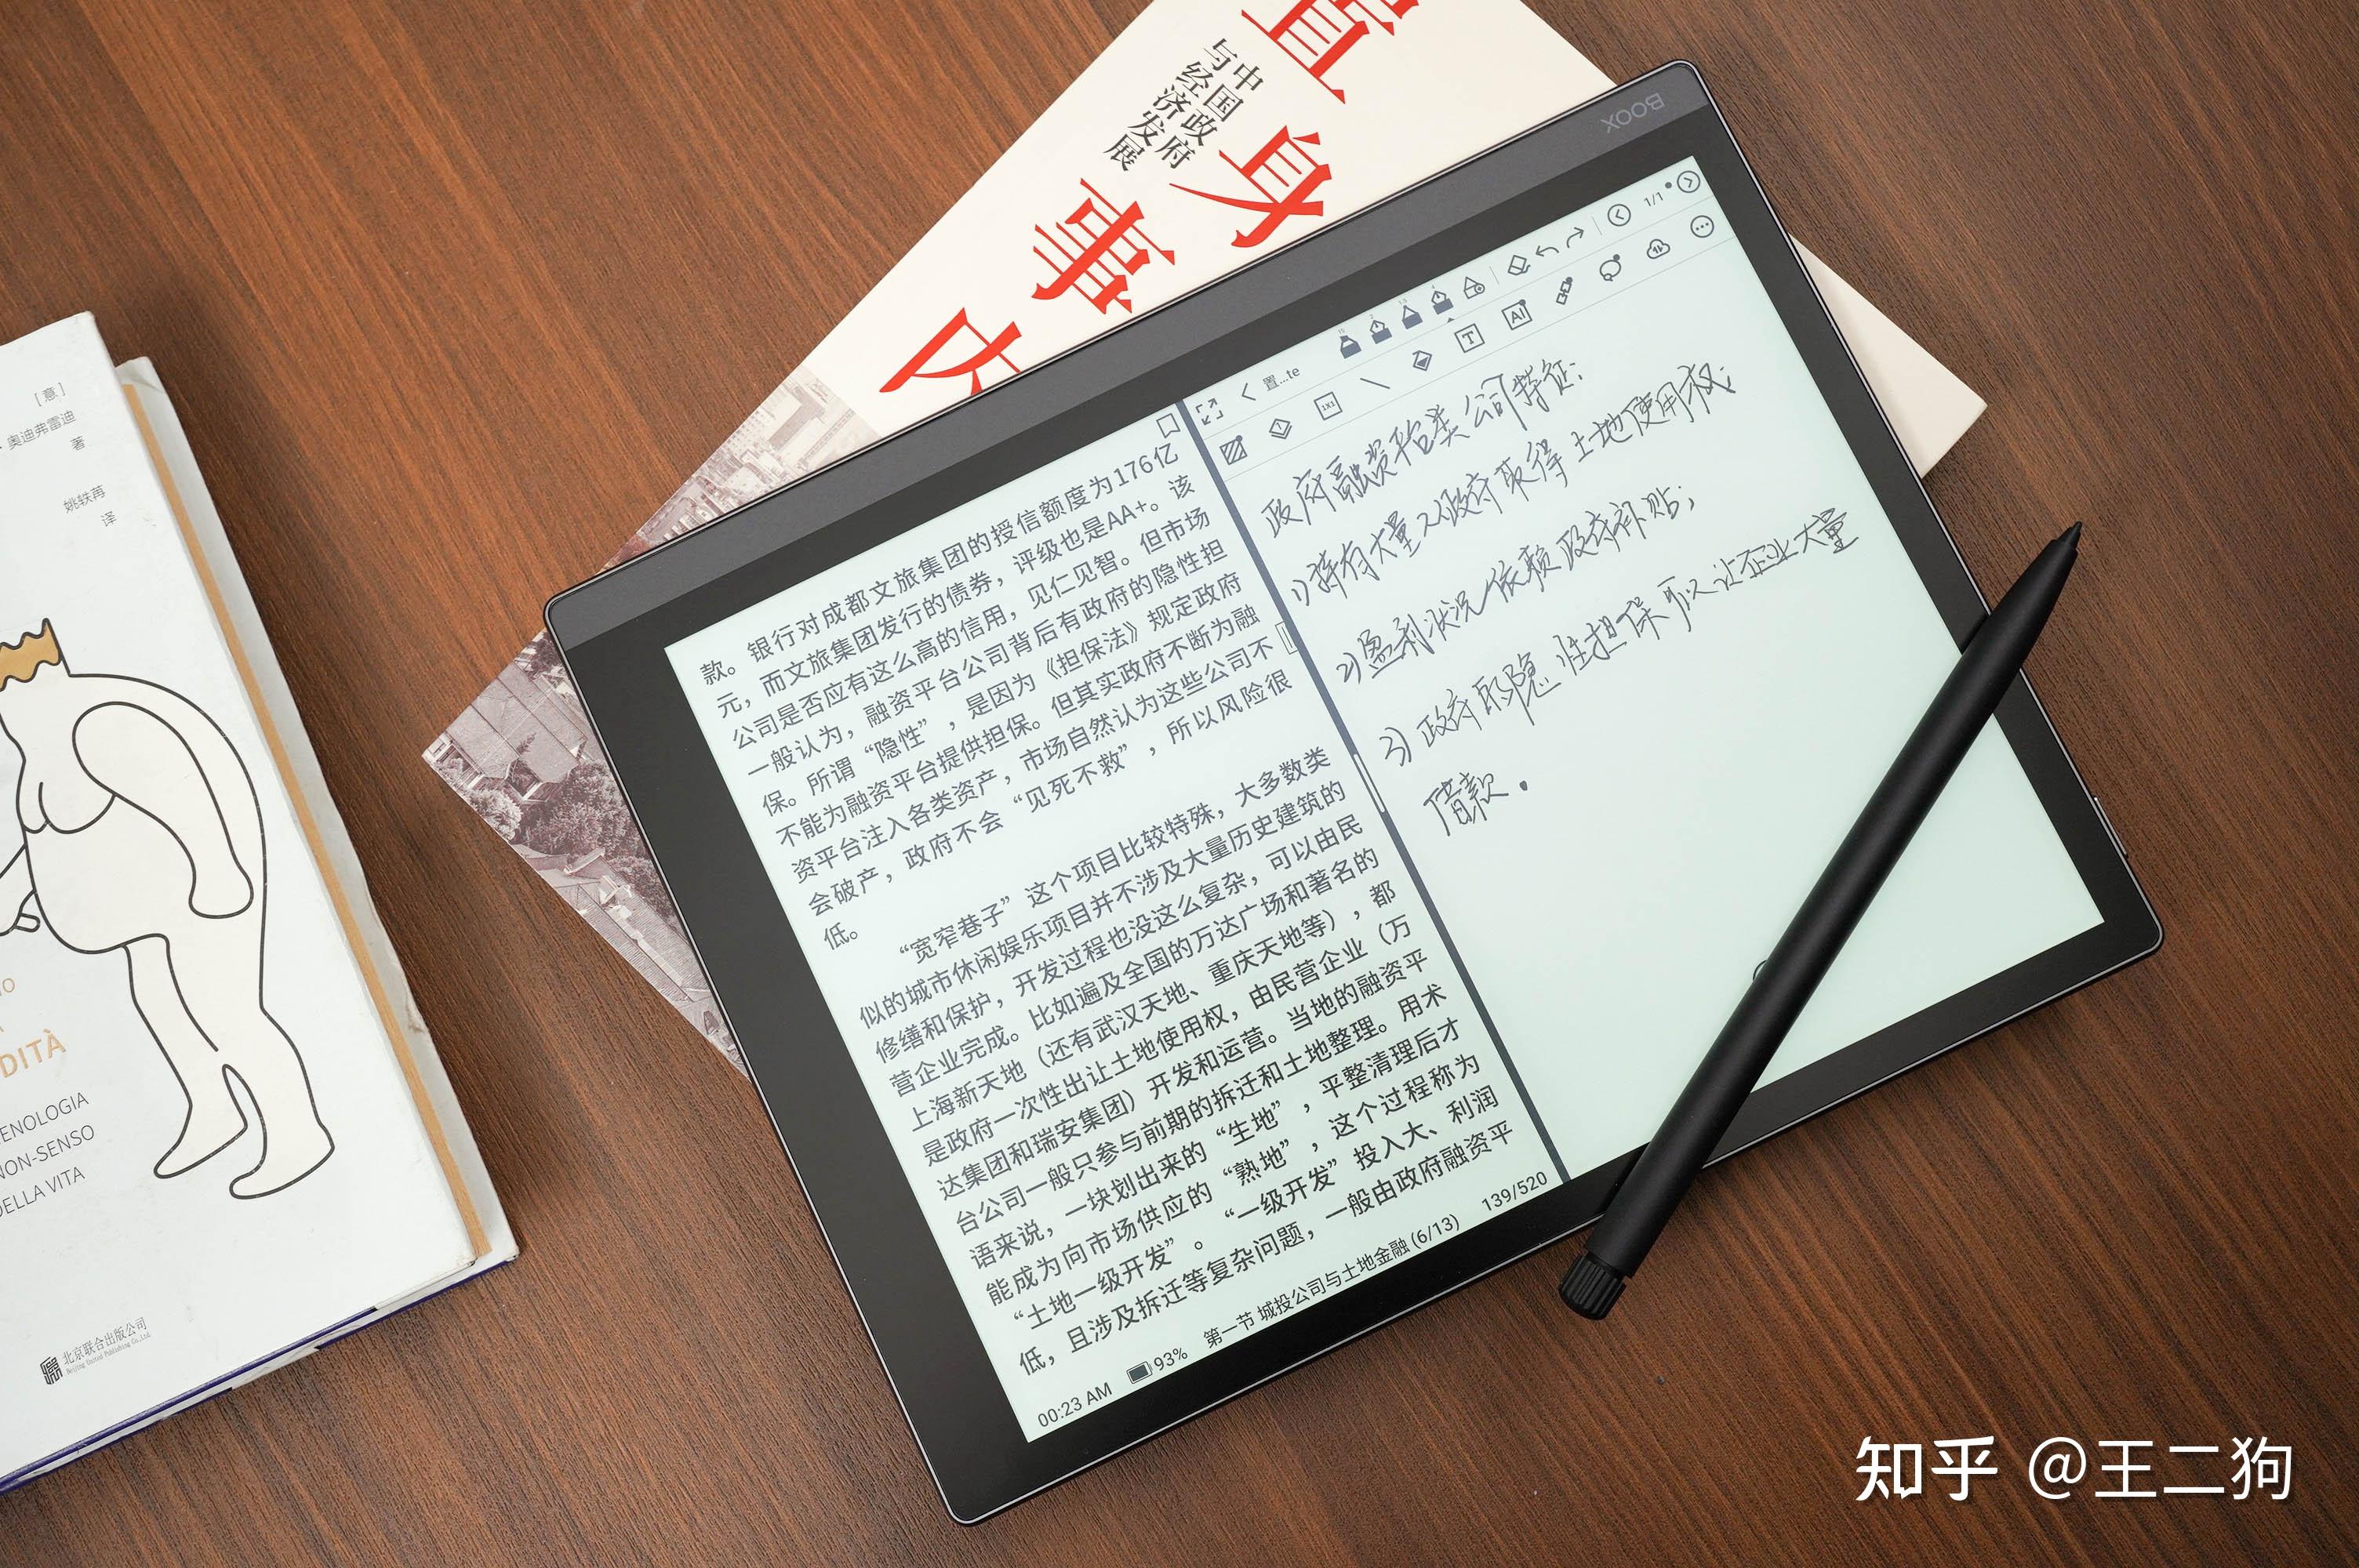 [意]
·奥迪弗雷迪
著
姚轶苒
译
DITÀ
ENOLOGIA
NON-SENSO
DELLA VITA
北京联合出版公司
Beijing United Publishing Co.,Ltd.
置身事内
中国政府
与经济发展
BOOX
款。银行对成都文旅集团的授信额度为176亿
元，而文旅集团发行的债券，评级也是AA+。该
公司是否应有这么高的信用，见仁见智。但市场
一般认为，融资平台公司背后有政府的隐性担
保。所谓“隐性”，是因为《担保法》规定政府
不能为融资平台提供担保。但其实政府不断为融
资平台注入各类资产，市场自然认为这些公司不
会破产，政府不会“见死不救”，所以风险很
低。
“宽窄巷子”这个项目比较特殊，大多数类
似的城市休闲娱乐项目并不涉及大量历史建筑的
修缮和保护，开发过程也没这么复杂，可以由民
营企业完成。比如遍及全国的万达广场和著名的
上海新天地（还有武汉天地、重庆天地等），都
是政府一次性出让土地使用权，由民营企业（万
达集团和瑞安集团）开发和运营。当地的融资平
台公司一般只参与前期的拆迁和土地整理。用术
语来说，一块划出来的“生地”，平整清理后才
能成为向市场供应的“熟地”，这个过程称为
“土地一级开发”。“一级开发”投入大、利润
低，且涉及拆迁等复杂问题，一般由政府融资平
00:23 AM 93% 第一节 城投公司与土地金融 (6/13) 139/520
置...te
1/1
T
AI
政府融资平台类公司特征：
1) 持有大量从政府取得土地使用权；
2) 盈利状况依赖政府补贴；
3) 政府的隐性担保可以让企业大量
借款.
知乎 @王二狗